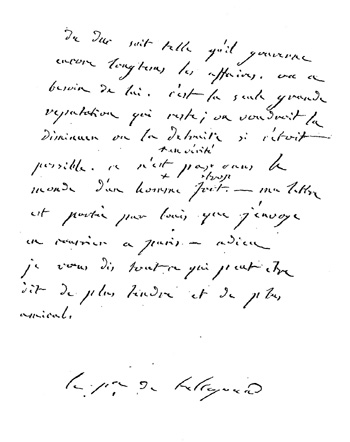 du duc soit telle qu'il gouverne
encore longtems les affaires. on a
besoin de lui. c'est la seule grande
reputation qui reste; on voudroit la
diminuer ou la detruire si c'étoit
+ en vérité
possible. ce n'est pas dans le
+ trop
monde d'un homme fort. — ma lettre
est portée par louis que j'envoye
en courrier a paris — adieu
je vous dis tout ce qui peut etre
dit de plus tendre et de plus
amical.
le pce de